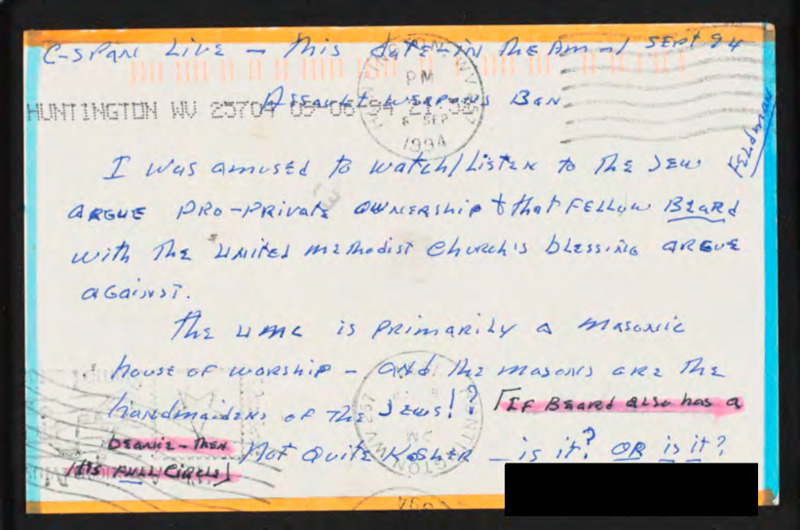 C-SPAN Live – this date – in the AM – 1 Sept 94
PM
6 SEP
1994
HUNTINGTON WV 25704 09-06-94
Assault weapons Ban
Feldman
I was amused to watch/Listen to the Jew
argue pro-private ownership & that fellow Beard
with the United Methodist Church's blessing argue
against.
The UMC is primarily a masonic
house of worship – and the masons are the
handmaidens of the Jews! – [If Beard also has a
beanie – then
its full circle]
Not quite Kosher – is it? OR is it?